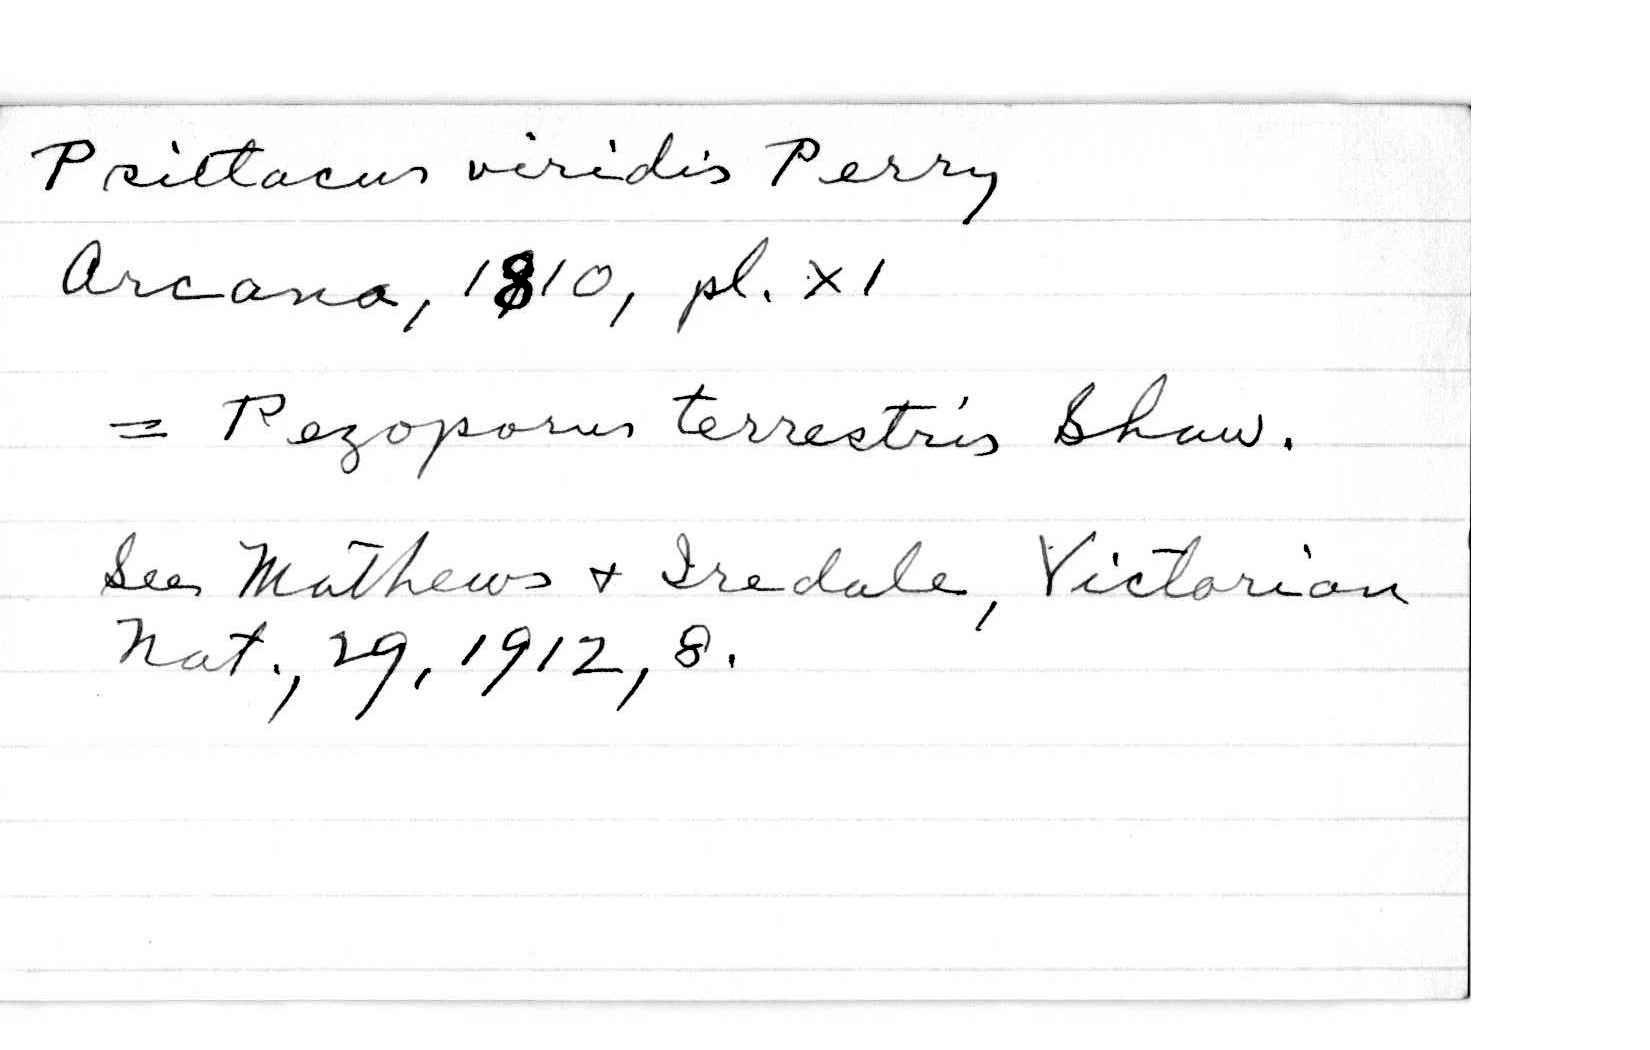 Psittacus viridis Perry
Arcana, 1810, pl. XI
= Pezoporus terrestris Shaw.
See Mathews & Iredale, Victorian
Nat., 29, 1912, 8.